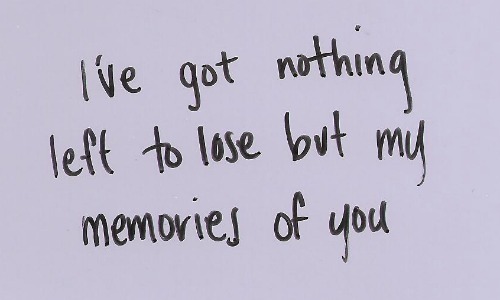 I've got nothing
left to lose but my
memories of you